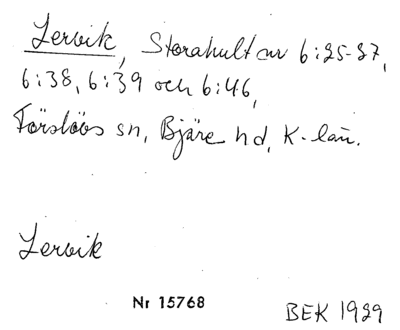 Lervik, Storahult nr 6:25-27,
6:38, 6:39 och 6:46,
Förslövs sn, Bjäre hd, K-län.
Lervik
Nr 15768
BEK 1929